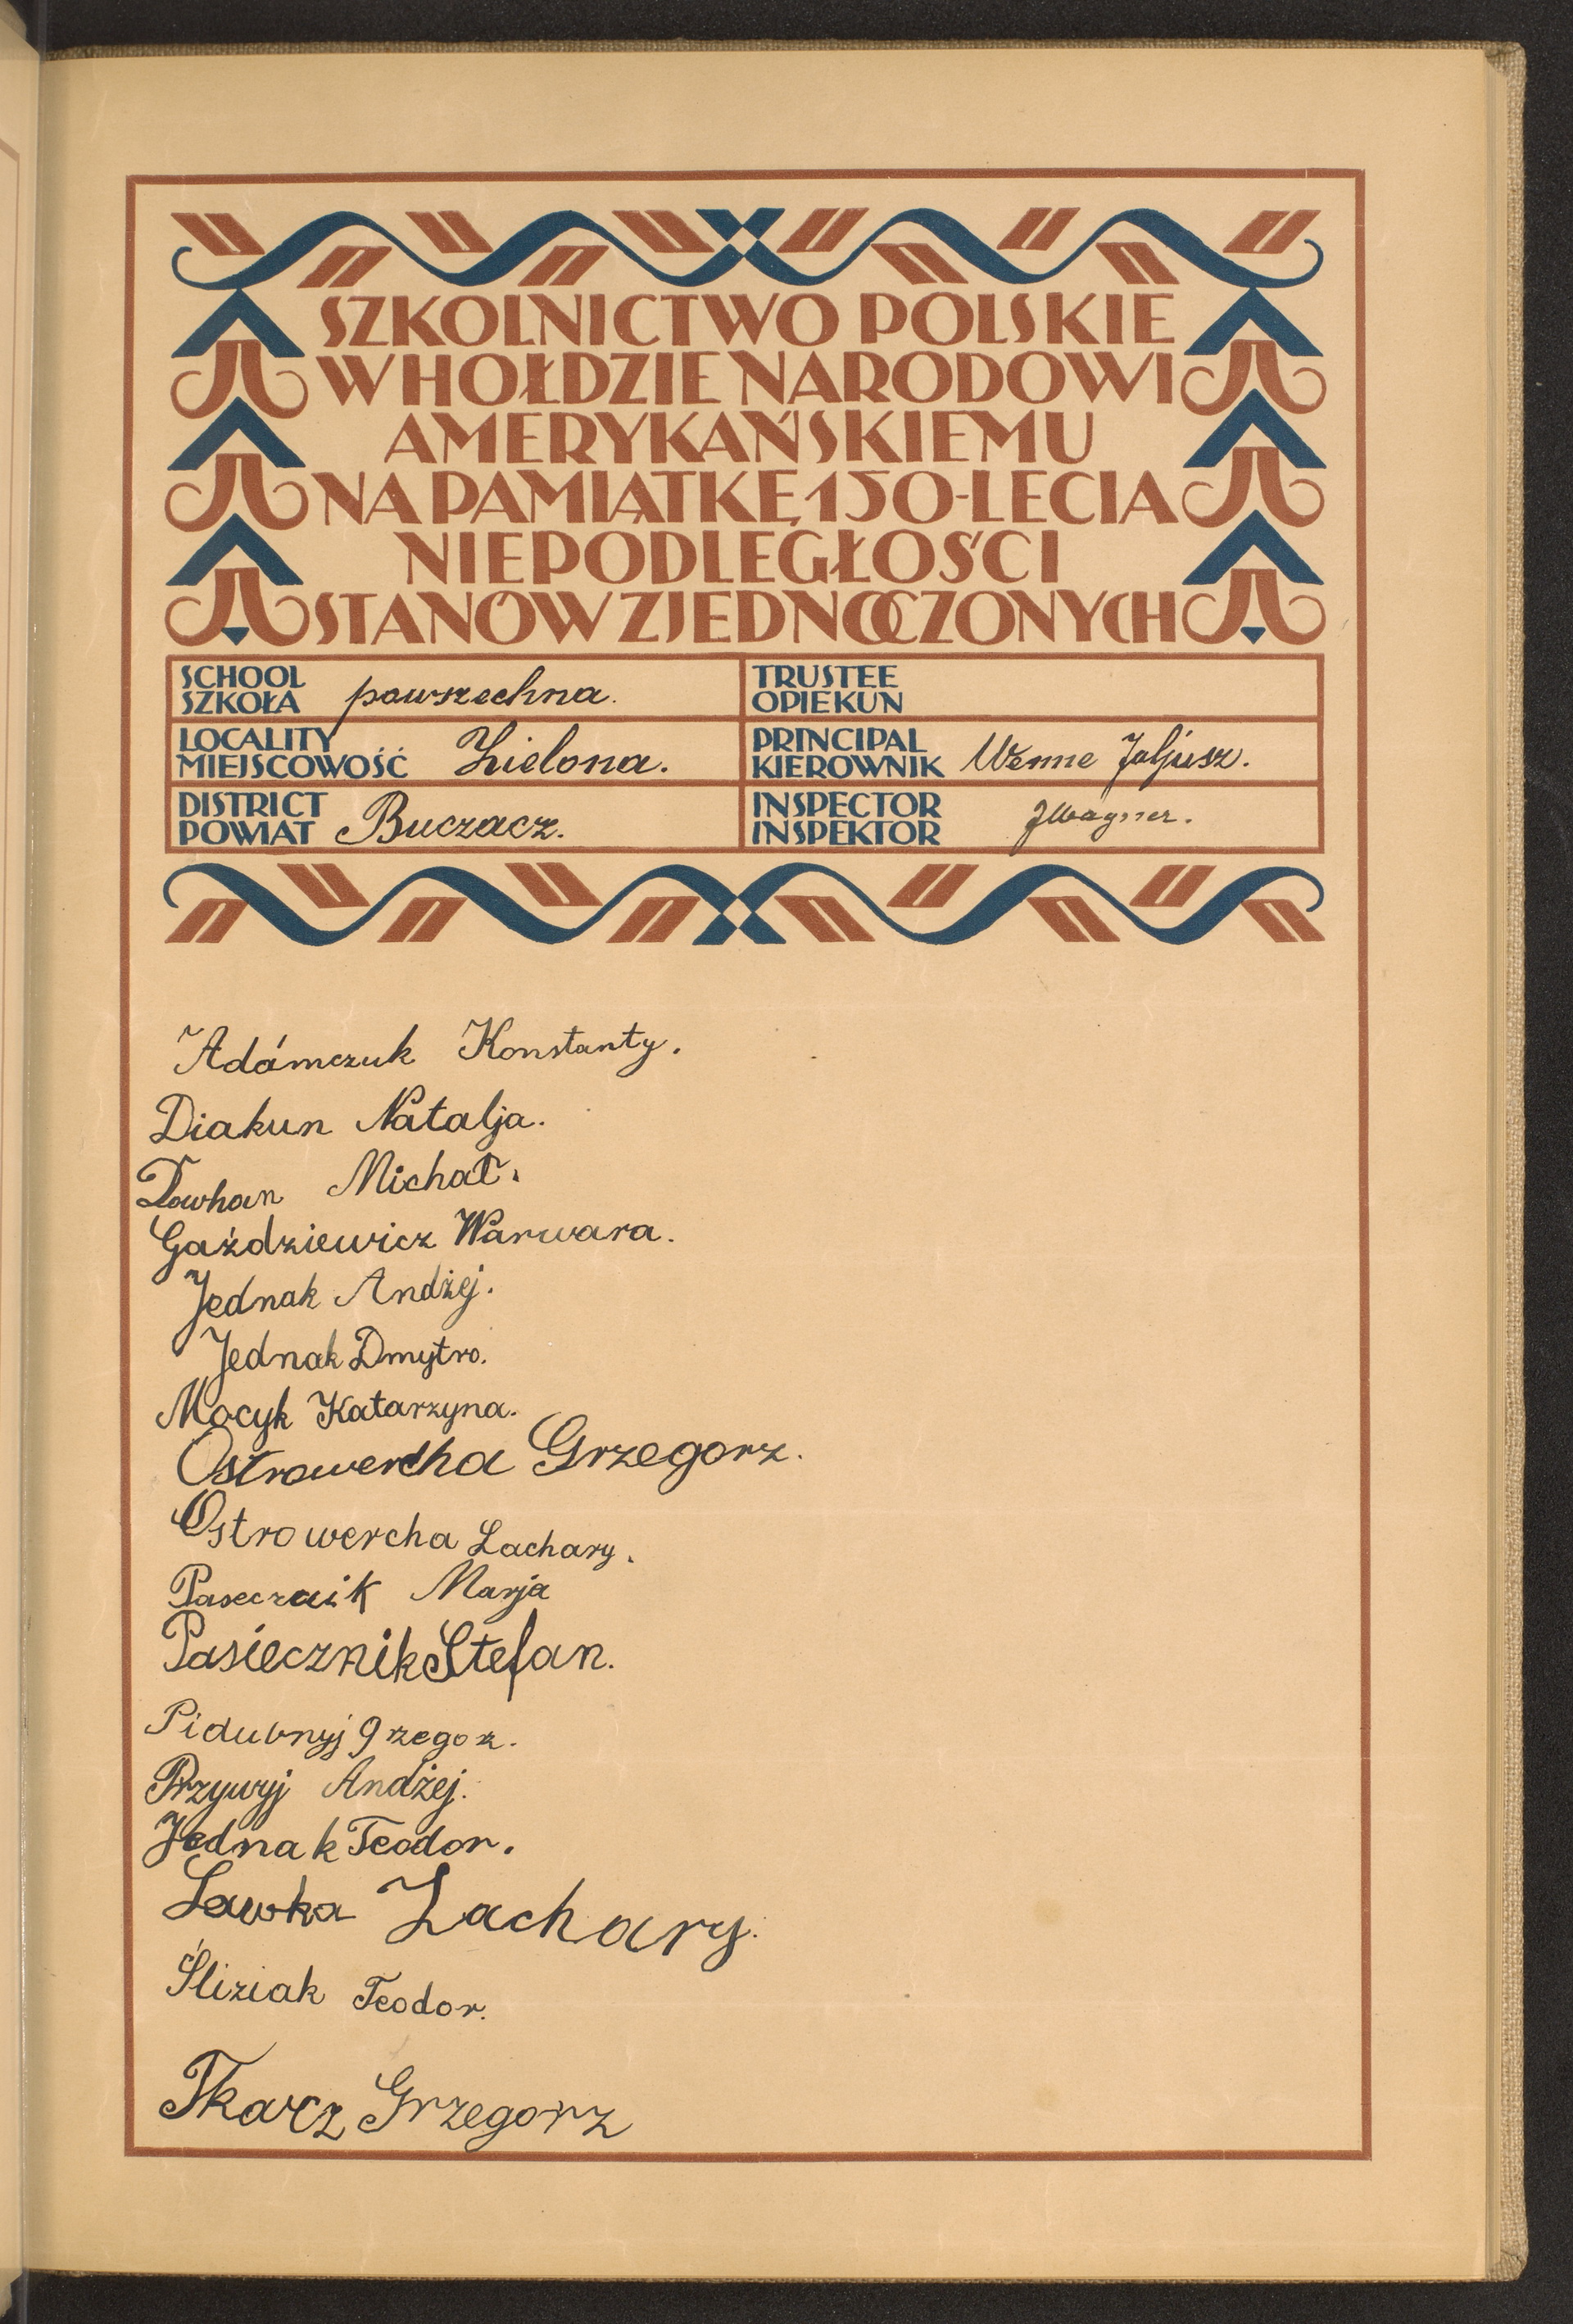 SZKOLNICTWO POLSKIE
W HOŁDZIE NARODOWI
AMERYKAŃSKIEMU
NA PAMIĄTKĘ 150-LECIA
NIEPODLEGŁOŚCI
STANÓW ZJEDNOCZONYCH
SCHOOL
SZKOŁA powszechna.
TRUSTEE
OPIEKUN
LOCALITY
MIEJSCOWOŚĆ Zielona.
PRINCIPAL
KIEROWNIK Wenne Juljusz.
DISTRICT
POWIAT Buczacz.
INSPECTOR
INSPEKTOR JWagner.
Adámczuk Konstanty.
Diakun Natalja.
Dowhan Michał.
Gaździewicz Warwara.
Jednak Andżej.
Jednak Dmytro.
Mocyk Katarzyna.
Ostrowercha Grzegorz.
Ostrowercha Zachary.
Pasecznik Marja
Pasiecznik Stefan.
Pidubnyj Grzegoz.
Przywyj Andżej.
Jednak Teodor.
Sawka Zachary.
Śliziak Teodor.
Tkacz Grzegorz